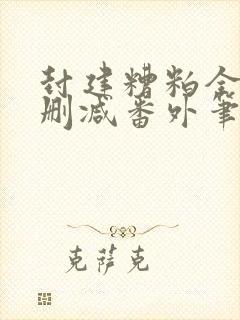 封建糟粕全
删减番外笔
克萨克